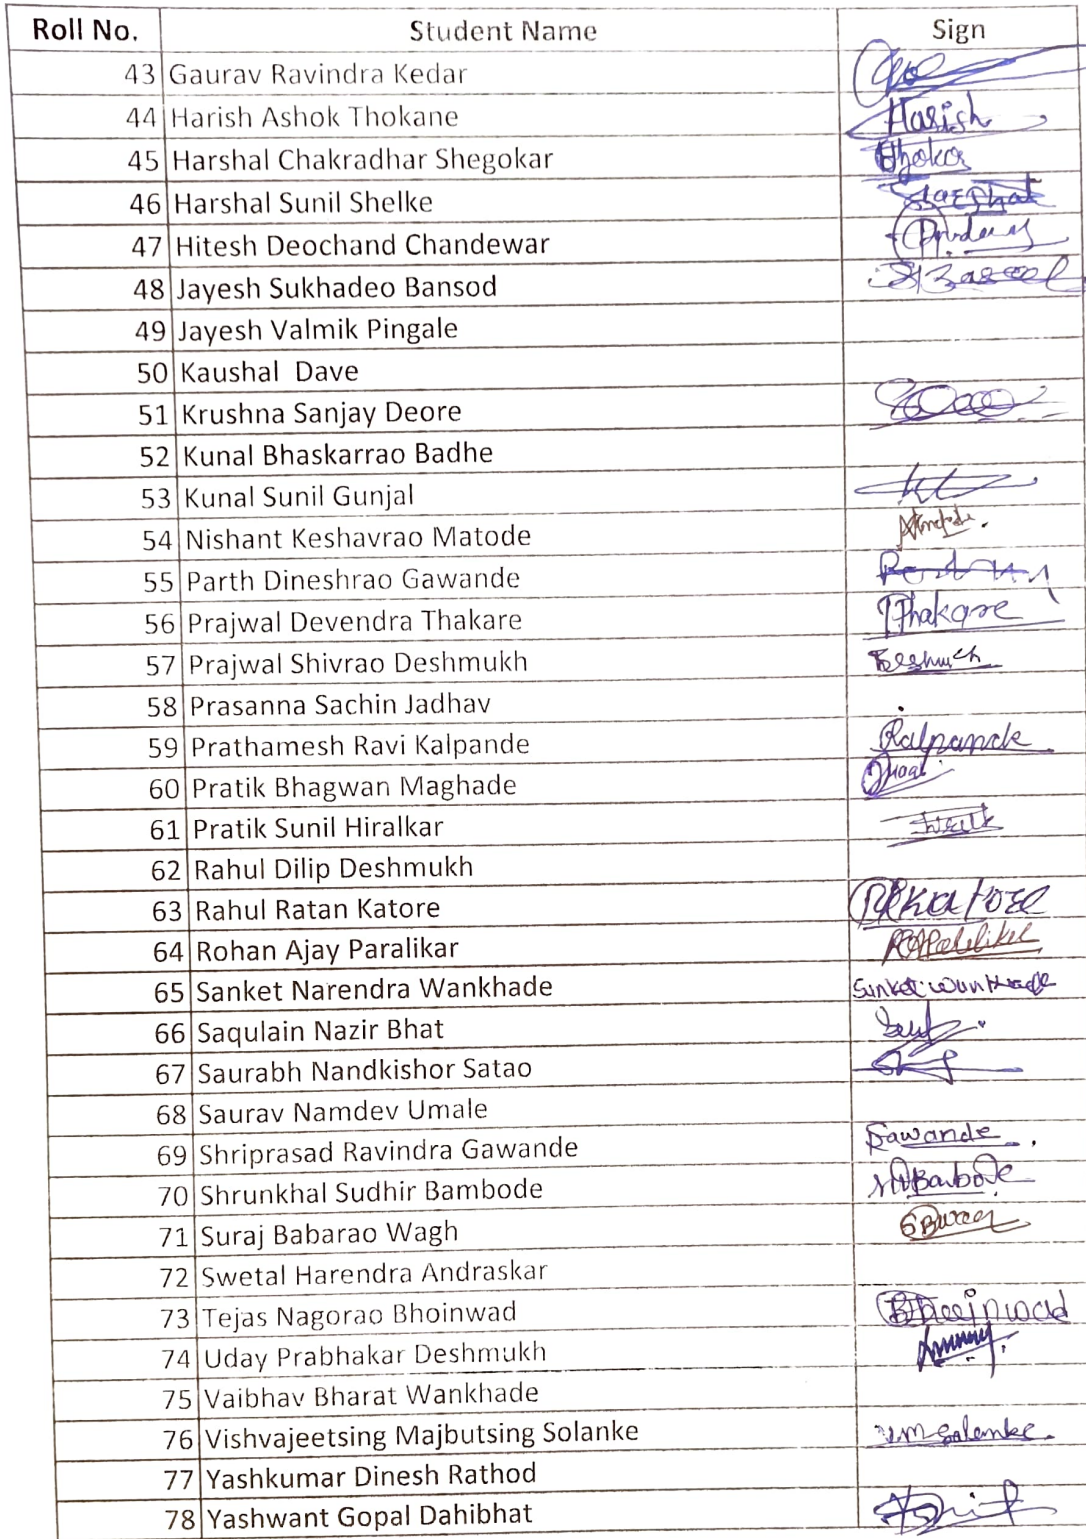 Roll No. Student Name Sign
43 Gaurav Ravindra Kedar
44 Harish Ashok Thokane Harish
45 Harshal Chakradhar Shegokar
46 Harshal Sunil Shelke
47 Hitesh Deochand Chandewar
48 Jayesh Sukhadeo Bansod
49 Jayesh Valmik Pingale
50 Kaushal Dave
51 Krushna Sanjay Deore
52 Kunal Bhaskarrao Badhe
53 Kunal Sunil Gunjal
54 Nishant Keshavrao Matode
55 Parth Dineshrao Gawande
56 Prajwal Devendra Thakare PThakare
57 Prajwal Shivrao Deshmukh
58 Prasanna Sachin Jadhav
59 Prathamesh Ravi Kalpande
60 Pratik Bhagwan Maghade
61 Pratik Sunil Hiralkar
62 Rahul Dilip Deshmukh
63 Rahul Ratan Katore RRKatore
64 Rohan Ajay Paralikar
65 Sanket Narendra Wankhade Sanket Wankhade
66 Saqulain Nazir Bhat
67 Saurabh Nandkishor Satao
68 Saurav Namdev Umale
69 Shriprasad Ravindra Gawande Gawande
70 Shrunkhal Sudhir Bambode
71 Suraj Babarao Wagh
72 Swetal Harendra Andraskar
73 Tejas Nagorao Bhoinwad
74 Uday Prabhakar Deshmukh
75 Vaibhav Bharat Wankhade
76 Vishvajeetsing Majbutsing Solanke vmsolanke.
77 Yashkumar Dinesh Rathod
78 Yashwant Gopal Dahibhat